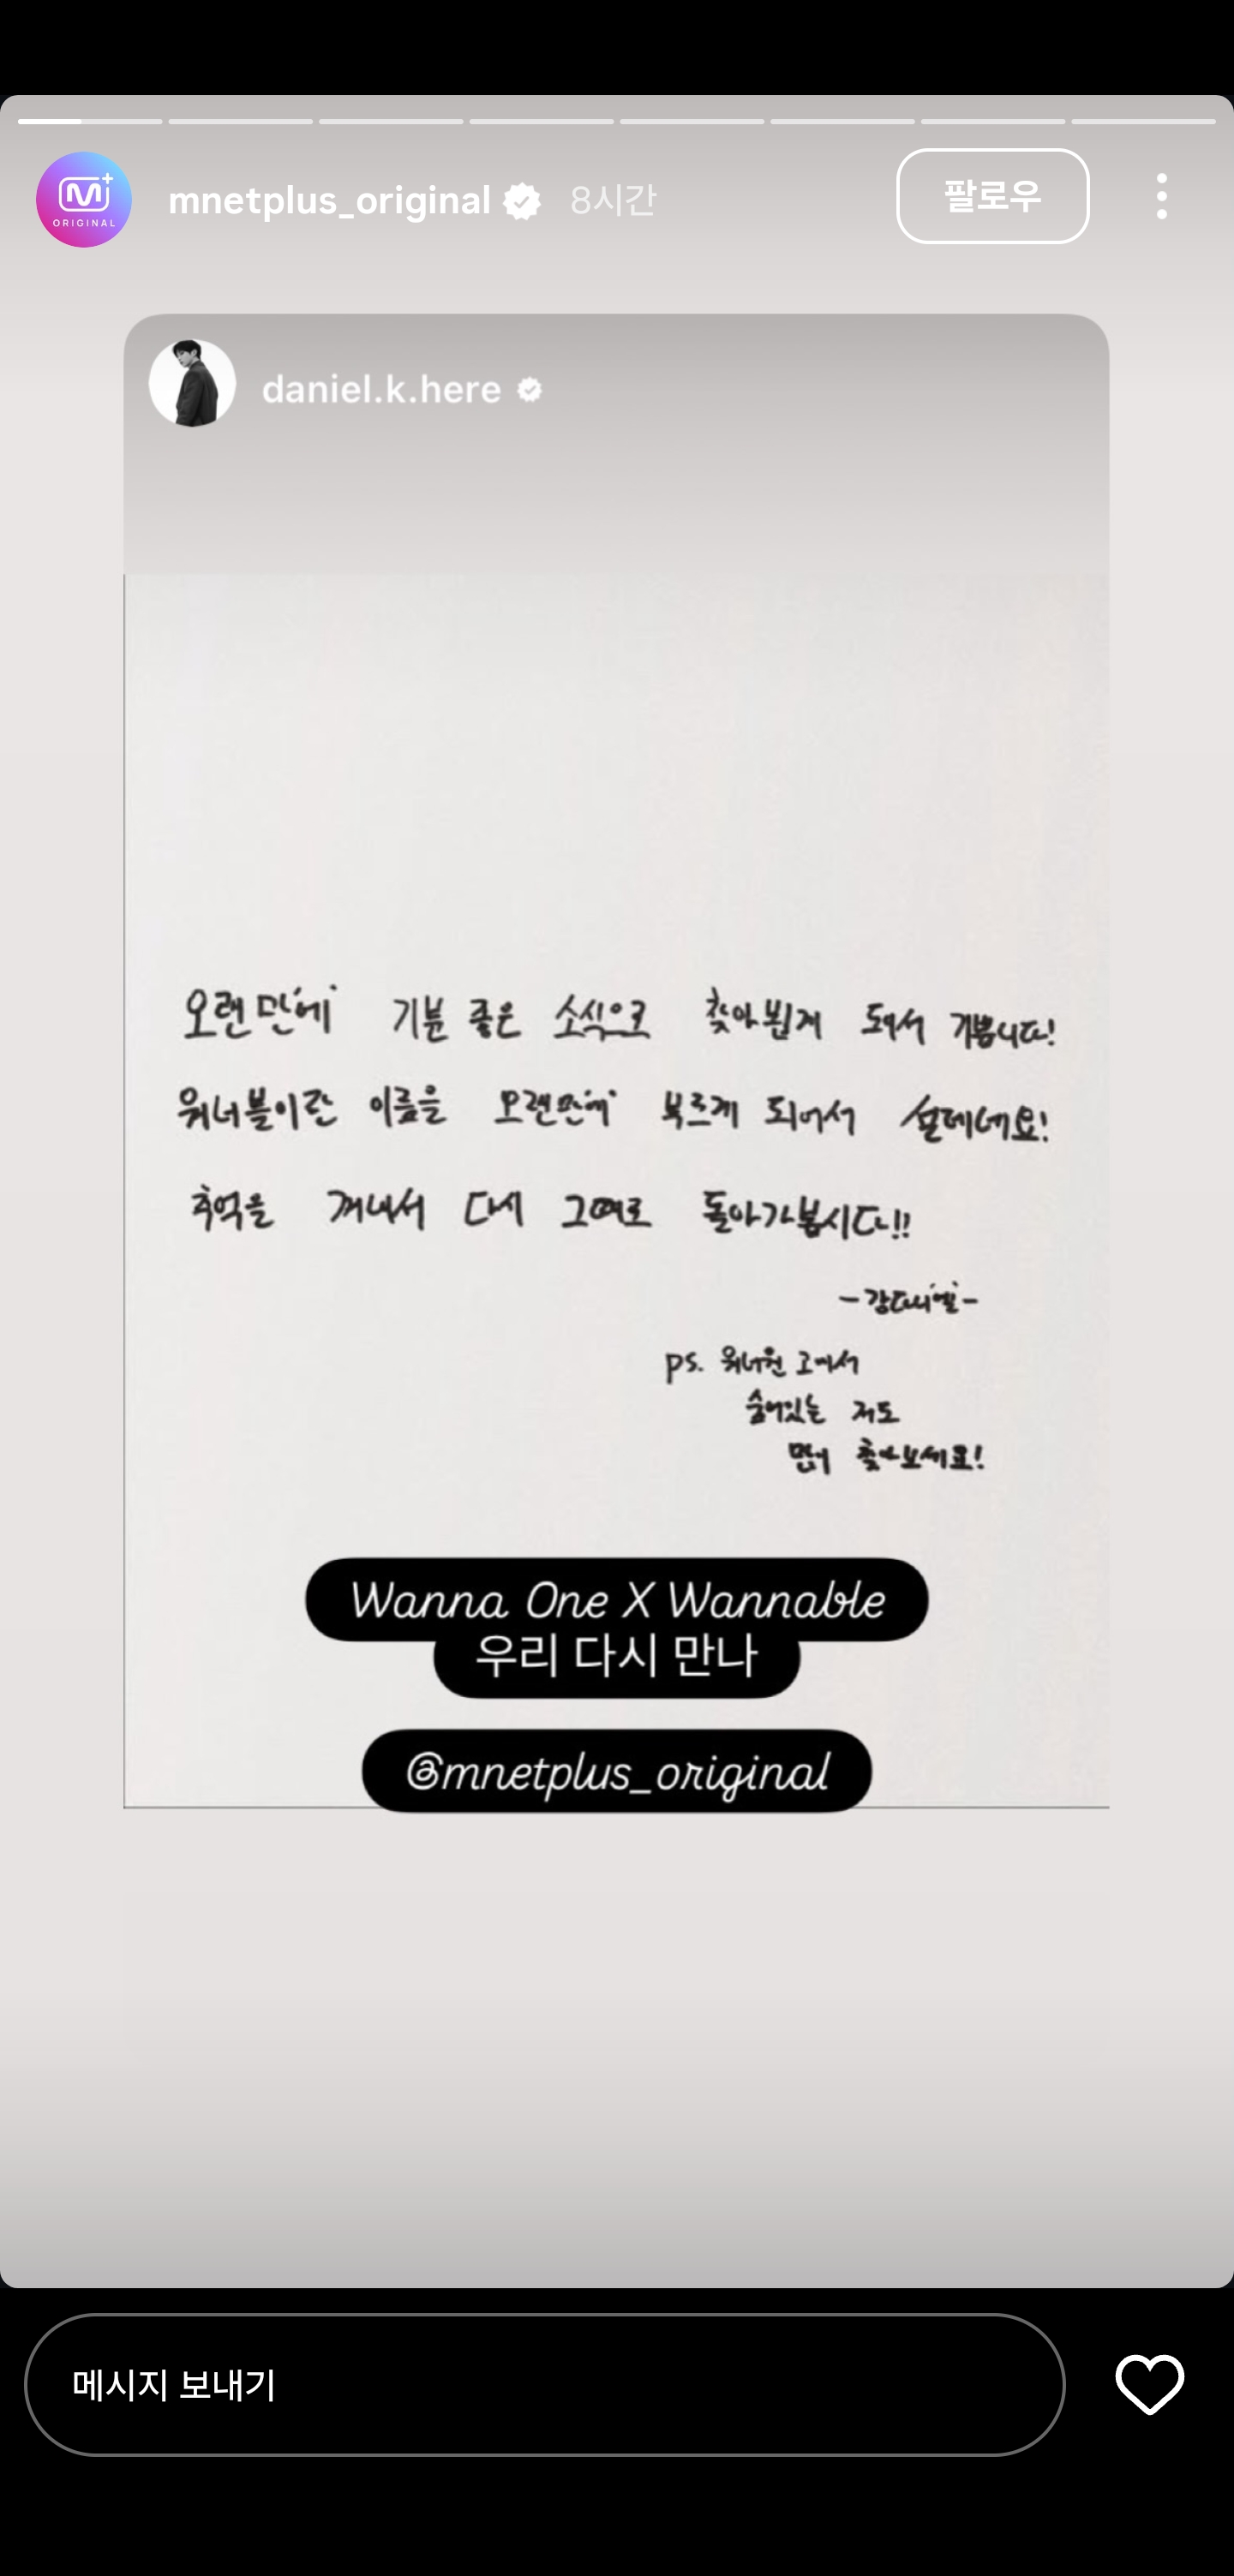 M+
ORIGINAL
mnetplus_original 8시간 팔로우
daniel.k.here
오랜만에 기분 좋은 소식으로 찾아뵙게 돼서 기쁩니다!
워너블이란 이름을 오랜만에 부르게 되어서 설레네요!
추억을 꺼내서 다시 그때로 돌아가봅시다!!
-강다니엘-
ps. 워너원 고에서
숨어있는 저도
많이 찾아보세요!
Wanna One X Wannable
우리 다시 만나
@mnetplus_original
메시지 보내기